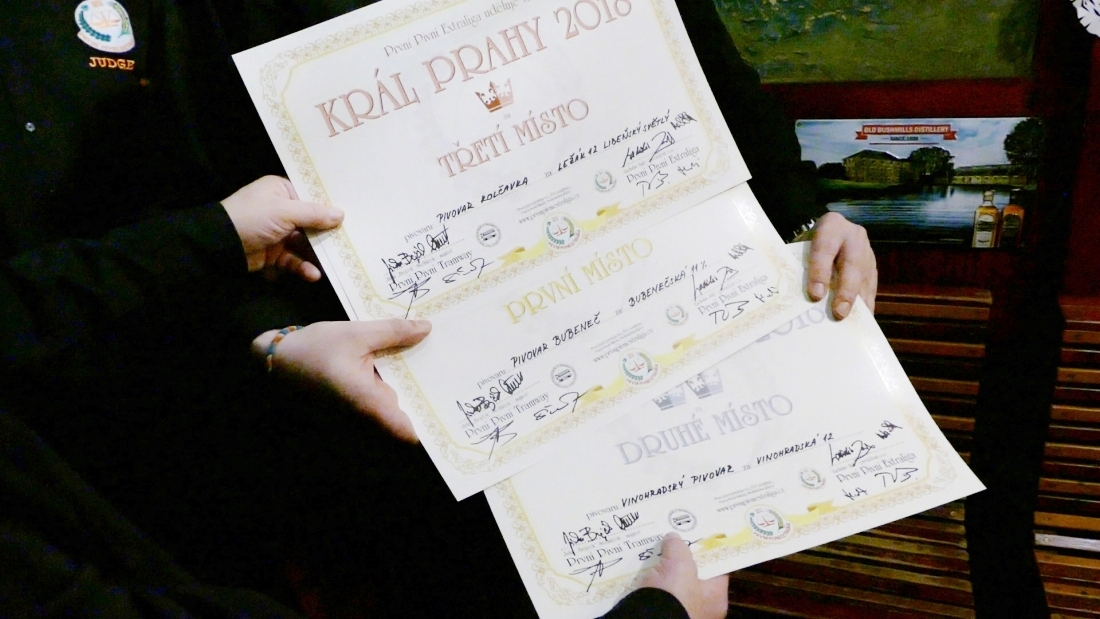 JUDGE
První Pivní Extraliga uděluje
KRÁL PRAHY 2018
za
TŘETÍ MÍSTO
pivovaru PIVOVAR KOLČAVKA za LEŽÁK 12 LIBEŇSKÝ SVĚTLÝ
První Pivní Tramway
První Pivní Extraliga
PRVNÍ MÍSTO
pivovaru PIVOVAR BUBENEČ za BUBENEČSKÁ 11%
První Pivní Tramway
První Pivní Extraliga
2018
za
DRUHÉ MÍSTO
pivovaru VINOHRADSKÝ PIVOVAR za VINOHRADSKÁ 12
První Pivní Tramway
První Pivní Extraliga
OLD BUSHMILLS DISTILLERY